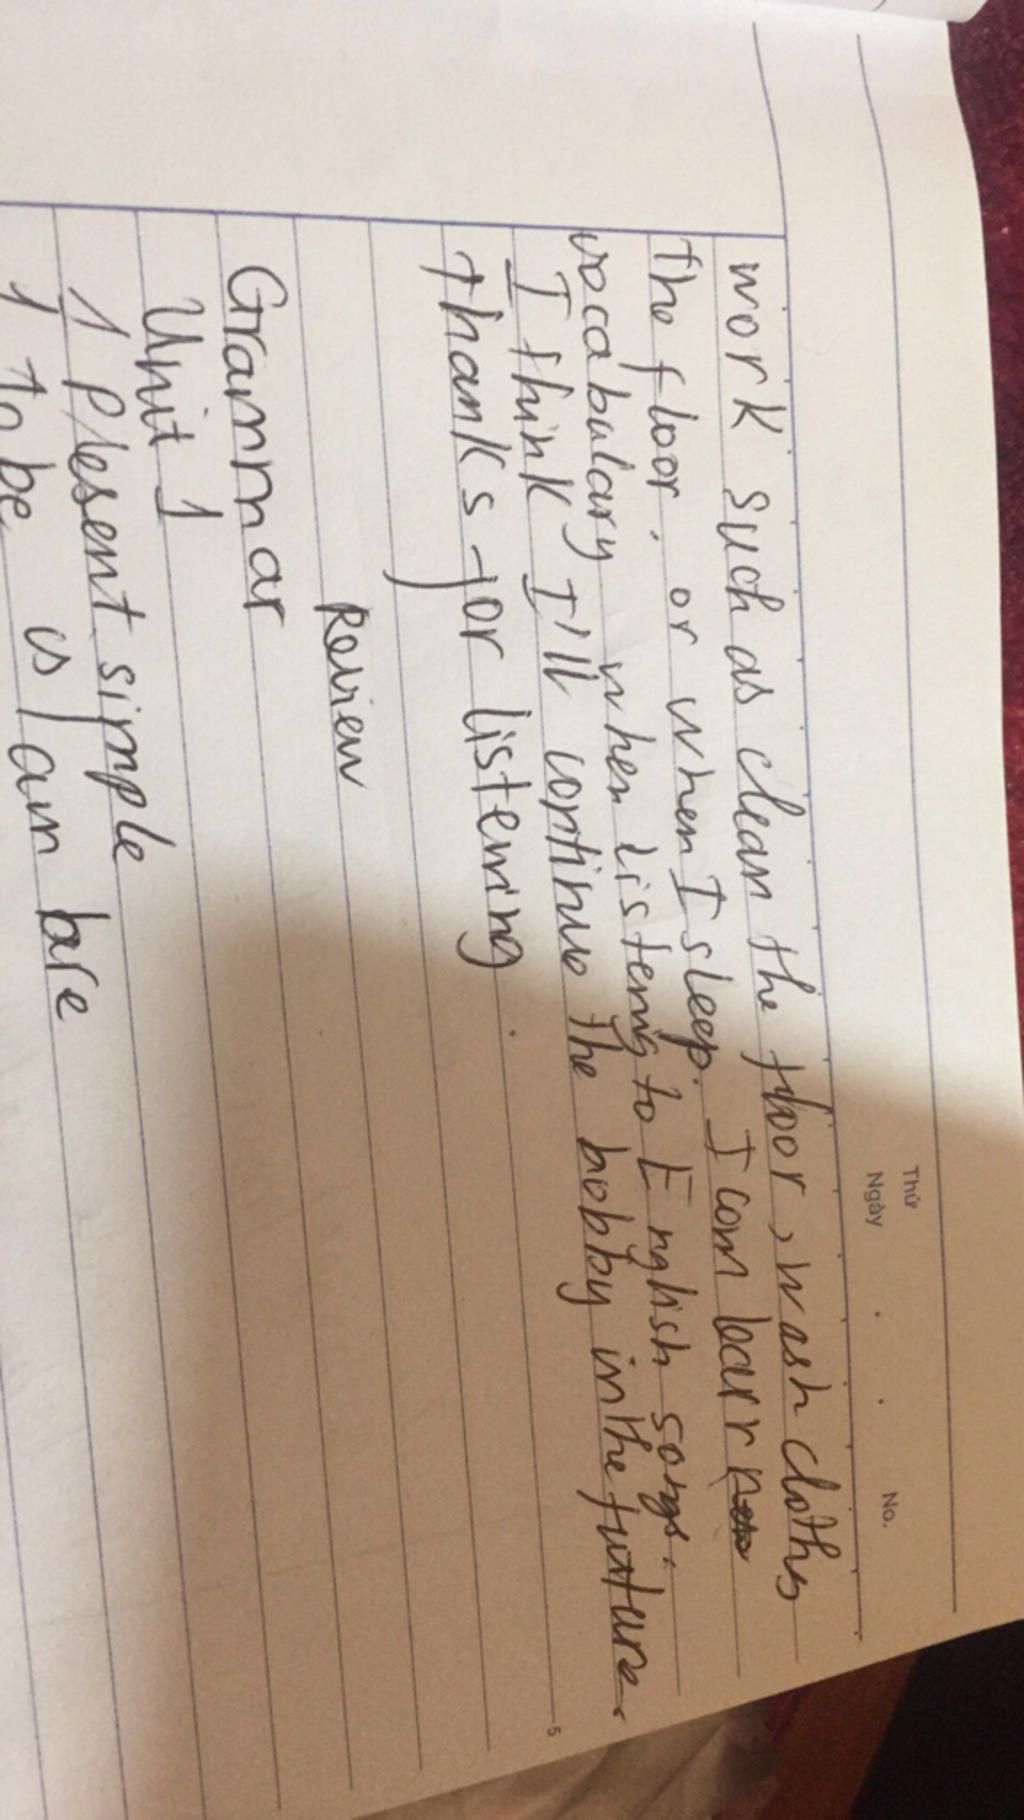 Thứ
Ngày
No.
work such as clean the floor, wash cloths
the floor. or when I sleep. I can learn
vocabulary when listening to English songs.
I think I'll continue the hobby in the future.
thanks for listening.
Review
Grammar
Unit 1
1 Present simple
1 to be is / am / are
5